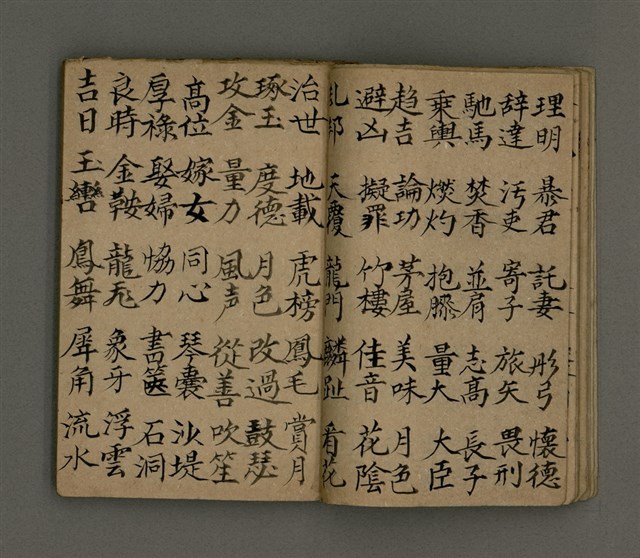 理明 暴君 託妻 彤弓 懷德
辞達 污吏 寄子 旅矢 畏刑
馳馬 焚香 並肩 志高 長子
乘輿 燃灼 抱膝 量大 大臣
趋吉 論功 茅屋 美味 月色
避凶 擬罪 竹樓 佳音 花陰
乱邦 天覆 龍門 麟趾 看花
治世 地載 虎榜 鳳毛 賞月
琢玉 度德 月色 改過 鼓瑟
攻金 量力 風声 從善 吹笙
高位 嫁女 同心 琴囊 沙堤
厚祿 娶婦 恊力 書篋 石洞
良時 金鞍 龍飛 象牙 浮雲
吉日 玉轡 鳳舞 犀角 流水